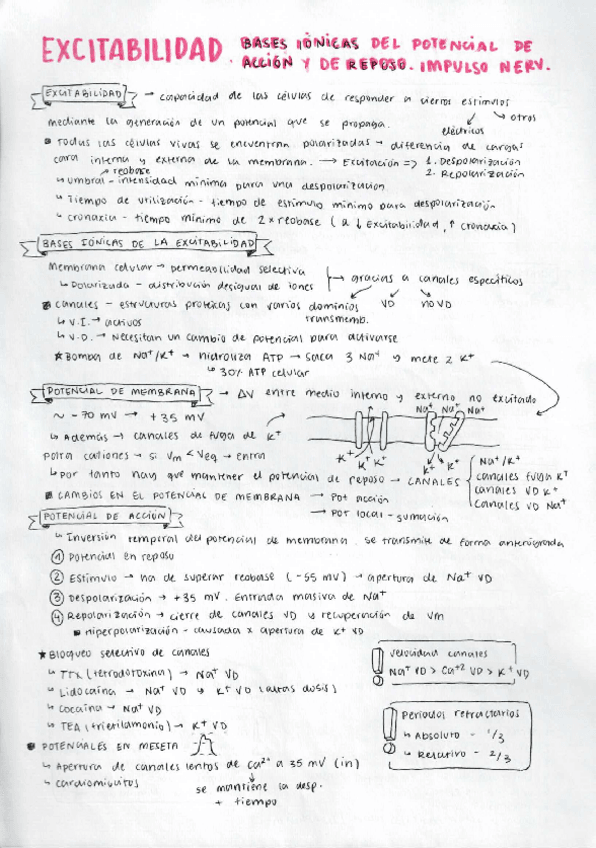 EXCITABILIDAD BASES IÓNICAS DEL POTENCIAL DE
ACCIÓN Y DE REPOSO. IMPULSO NERV.
EXCITABILIDAD → capacidad de las células de responder a ciertos estímulos
mediante la generación de un potencial que se propaga.
eléctricos
otros
Todas las células vivas se encuentran polarizadas → diferencia de cargas
cara interna y externa de la membrana. → Excitación => 1. Despolarización
2. Repolarización
reobase
↳ umbral - intensidad mínima para una despolarización
↳ Tiempo de utilización - tiempo de estímulo mínimo para despolarización
↳ cronaxia - tiempo mínimo de 2x reobase (a ↓ Excitabilidad, ↑ cronaxia)
BASES IÓNICAS DE LA EXCITABILIDAD
Membrana celular → permeabilidad selectiva
↳ Polarizada - distribución desigual de iones
→ gracias a canales específicos
canales - estructuras proteicas con varios dominios
transmemb.
VD
no VD
↳ V.I. → activos
↳ V.D. → Necesitan un cambio de potencial para activarse
★ Bomba de Na⁺/K⁺ → hidroliza ATP → saca 3 Na⁺ y mete 2 K⁺
↳ 30% ATP celular
POTENCIAL DE MEMBRANA → ΔV entre medio interno y externo no excitado
~ -70 mV → +35 mV
Na⁺ Na⁺ Na⁺
↳ Además → canales de fuga de K⁺
K⁺ K⁺ K⁺ K⁺ K⁺
Para cationes → si Vm < Veq → entra
↳ Por tanto hay que mantener el potencial de reposo → CANALES
Na⁺/K⁺
canales fuga K⁺
canales VD K⁺
canales VD Na⁺
CAMBIOS EN EL POTENCIAL DE MEMBRANA → Pot acción
→ Pot local - sumación
POTENCIAL DE ACCIÓN
↳ Inversión temporal del potencial de membrana. Se transmite de forma anterógrada
1 Potencial en reposo
2 Estímulo → ha de superar reobase (-55 mV) → apertura de Na⁺ VD
3 Despolarización → +35 mV. Entrada masiva de Na⁺
4 Repolarización → cierre de canales VD y recuperación de Vm
Hiperpolarización - causada x apertura de K⁺ VD
★ Bloqueo selectivo de canales
↳ TTX (tetrodotoxina) → Na⁺ VD
↳ Lidocaína → Na⁺ VD y K⁺ VD (altas dosis)
↳ Cocaína → Na⁺ VD
↳ TEA (trietilamonio) → K⁺ VD
Velocidad canales
Na⁺ VD > Ca⁺² VD > K⁺ VD
Periodos refractarios
↳ Absoluto - 1/3
↳ Relativo - 2/3
POTENCIALES EN MESETA
↳ Apertura de canales lentos de Ca²⁺ a 35 mV (in)
↳ cardiomiocitos
se mantiene la desp.
+ tiempo